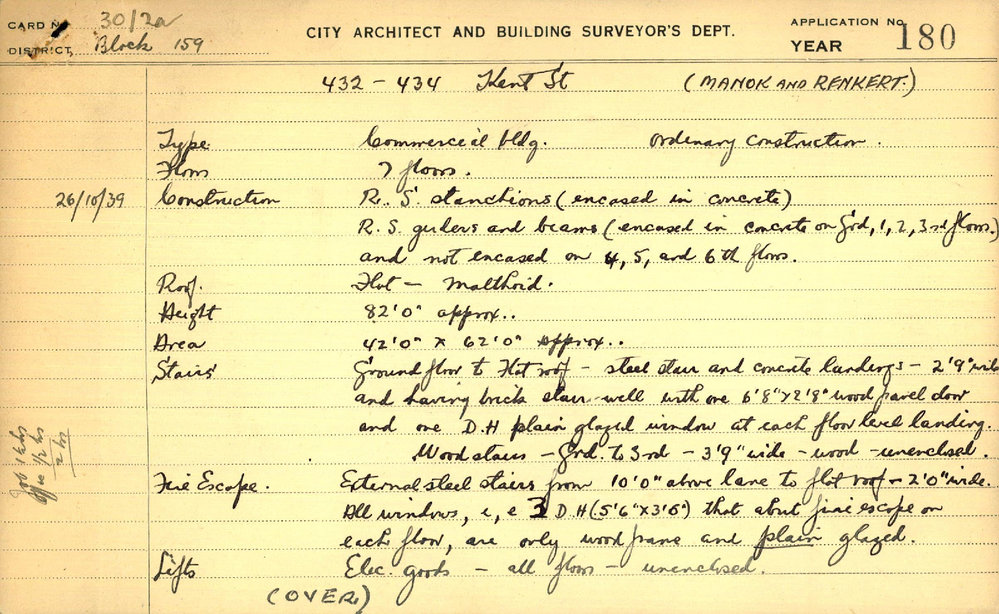 CARD No 30/2a
DISTRICT Block 159
CITY ARCHITECT AND BUILDING SURVEYOR'S DEPT.
APPLICATION No
YEAR 180
432 - 434 Kent St (MANOK AND RENKERT.)
Type Commercial bldg. Ordinary construction.
Floors 7 floors.
26/10/39 Construction R. S. stanchions (encased in concrete)
R. S. girders and beams (encased in concrete on Grd, 1, 2, 3rd floors.)
and not encased on 4, 5, and 6th floors.
Roof. Flat - Malthoid.
Height 82'0" approx..
Area 42'0" x 62'0" approx..
Stairs Ground floor to Flat roof - steel stair and concrete landings - 2'9" wide
and having brick stair-well with one 6'8" x 2'8" wood panel door
and one D.H plain glazed window at each floor level landing.
Wood stairs - Grd. to 3rd - 3'9" wide - wood - unenclosed.
Fire Escape. External steel stairs from 10'0" above lane to flat roof - 2'0" wide.
All windows, i, e 3 D.H (5'6" x 3'6") that abut fire escape on
each floor, are only wood frame and plain glazed.
Lifts Elec. goods - all floors - unenclosed.
(OVER)